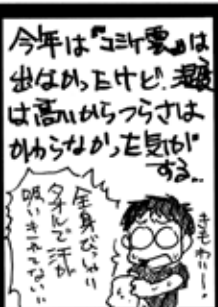 今年は『コミケ雲』は
出なかったけど、湿度
は高いからつらさは
かわらなかった気が
する…
全身びっしょり
タオルで汗が
吸いきれてない…
きもわりー…